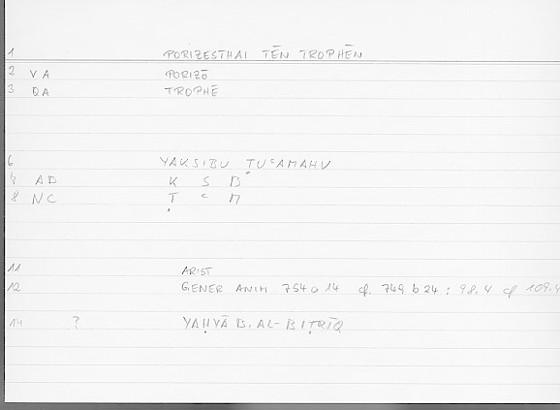 1 PORIZESTHAI TĒN TROPHĒN
2 VA PORIZŌ
3 QA TROPHĒ
6 YAKSIBU ṬUʿAMAHU
AD K S B
8 NC Ṭ ʿ M
11 ARIST
12 GENER ANIM 754 a 14 cf. 749 b 24 : 98.4 cf 109.4
14 ? YAḤYĀ B. AL-BIṬRĪQ